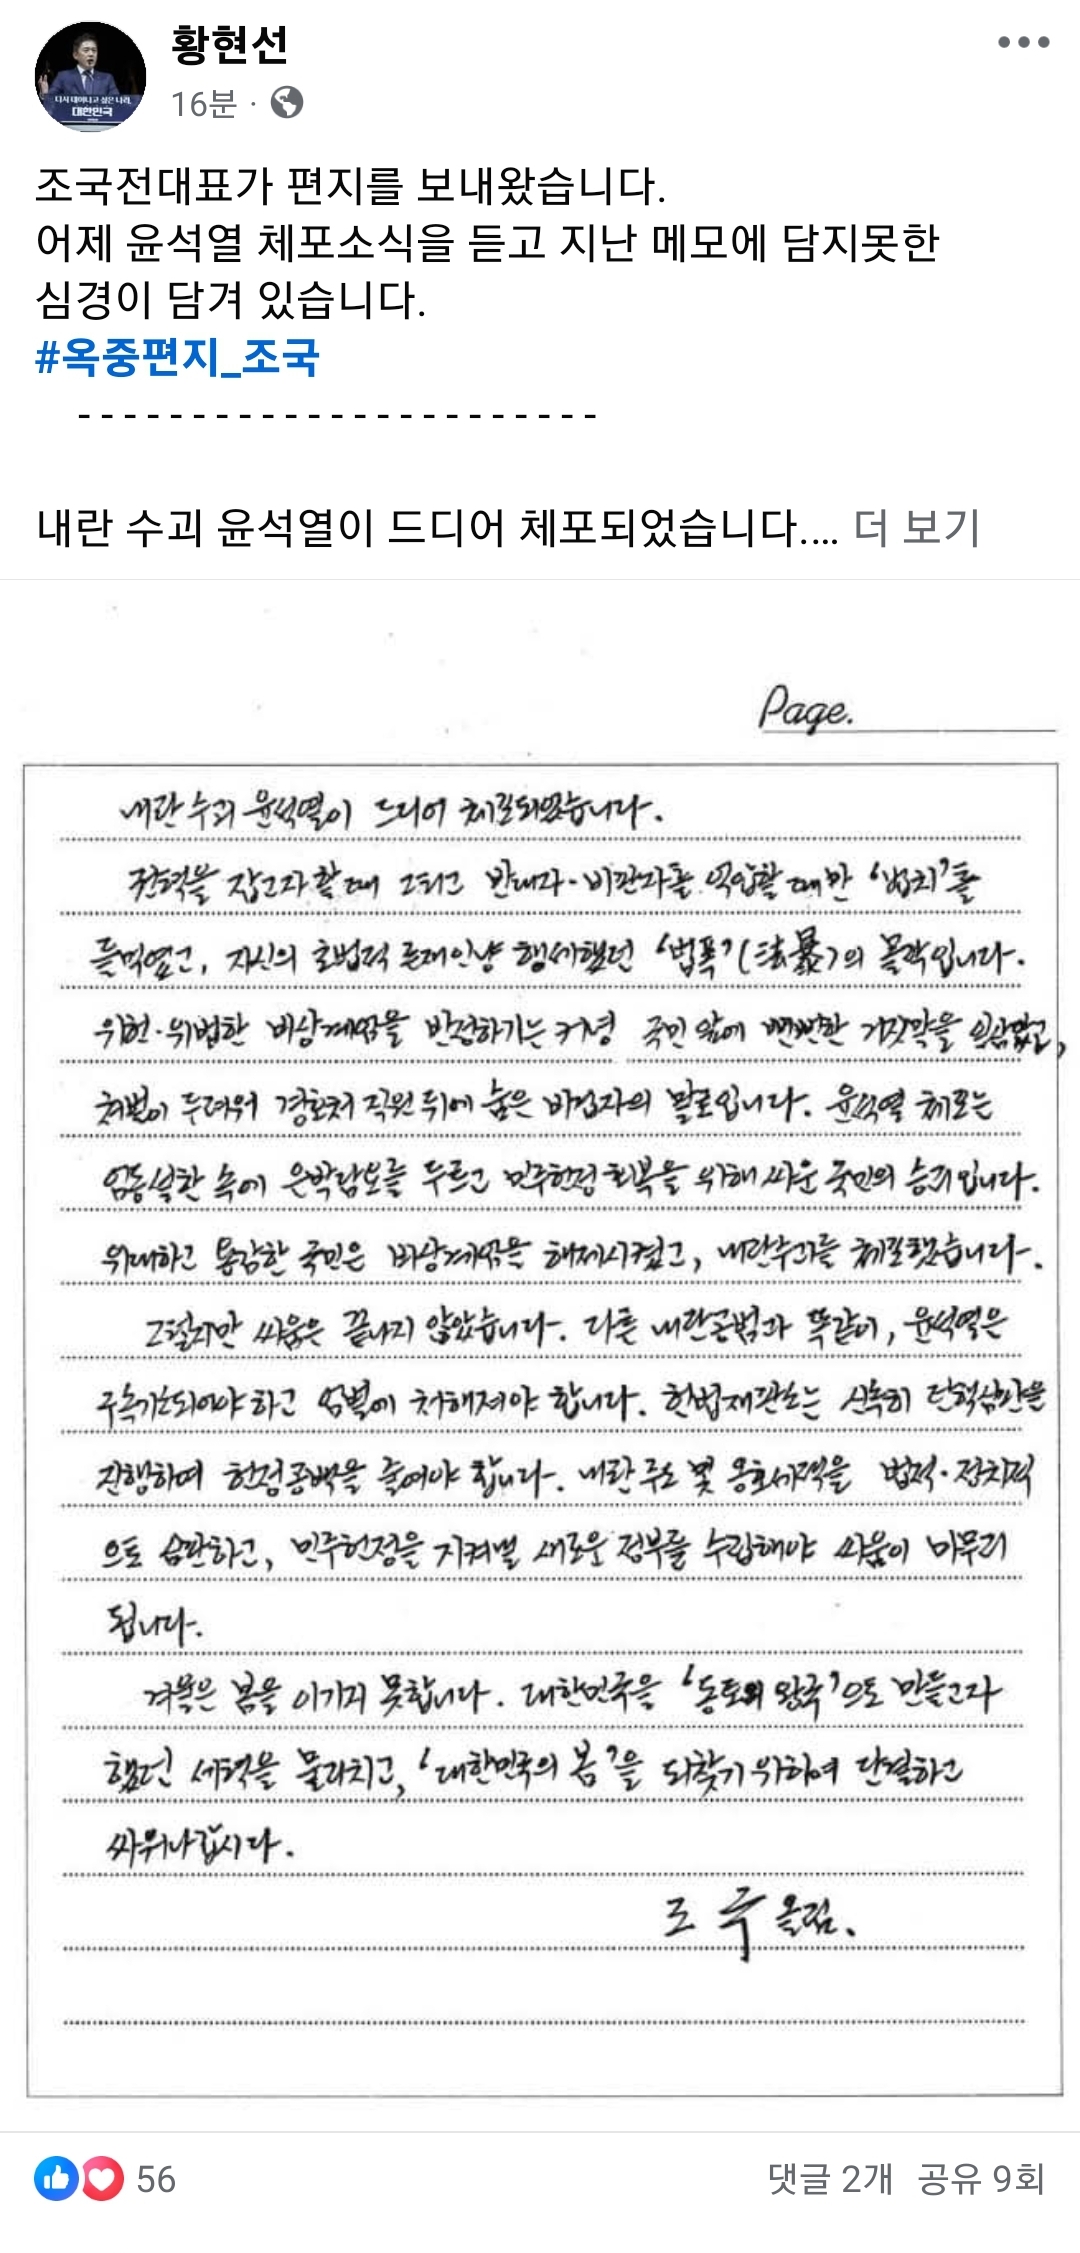 황현선
16분 ·
조국전대표가 편지를 보내왔습니다.
어제 윤석열 체포소식을 듣고 지난 메모에 담지못한
심경이 담겨 있습니다.
#옥중편지_조국
- - - - - - - - - - - - - - - - - - - - - - -
내란 수괴 윤석열이 드디어 체포되었습니다.... 더 보기
Page.
내란 수괴 윤석열이 드디어 체포되었습니다.
권력을 잡고자 할 때 그리고 반대자·비판자를 억압할 때만 '법치'를
들먹였고, 자신의 초법적 존재인양 행세했던 '법폭'(法暴)의 몰락입니다.
위헌·위법한 비상계엄을 반성하기는 커녕 국민 앞에 뻔뻔한 거짓말을 일삼았고,
처벌이 두려워 경호처 직원 뒤에 숨은 비겁자의 말로입니다. 윤석열 체포는
엄동설한 속에 은박담요를 두르고 민주헌정 회복을 위해 싸운 국민의 승리입니다.
위대하고 용감한 국민은 비상계엄을 해제시켰고, 내란수괴를 체포했습니다.
그렇지만 싸움은 끝나지 않았습니다. 다른 내란공범과 똑같이, 윤석열은
구속기소되어야 하고 엄벌에 처해져야 합니다. 헌법재판소는 신속히 탄핵심판을
진행하여 헌정공백을 줄여야 합니다. 내란 주도 및 옹호세력을 법적·정치적
으로 심판하고, 민주헌정을 지켜낼 새로운 정부를 수립해야 싸움이 마무리
됩니다.
겨울은 봄을 이기지 못합니다. 대한민국을 '동토의 왕국'으로 만들고자
했던 세력을 물리치고, '대한민국의 봄'을 되찾기 위하여 단결하고
싸워나갑시다.
조 국 올림.
56
댓글 2개 공유 9회